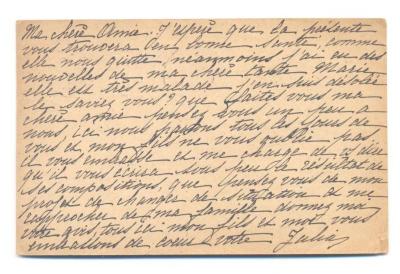 Ma chère Amie. J'espère que la présente
vous trouvera en bonne santé, comme
elle nous quitte, neanmoins j'ai eu des
nouvelles de ma chère tante Marie
elle est très malade j'en suis désolée
le saviez vous? que faites vous ma
chère amie pensez vous un peu a
nous, ici nous parlons tous les jours de
vous et mon fils ne vous oublie pas,
il vous embrasse et me charge de vs dire
qu'il vous écrira sous peu le résultat de
ses compositions, que pensez vous de mon
projet de changer de situation et me
rapprocher de ma famille donnez moi
votre avis, tous ici mon fils et moi vous
embrassons de coeur votre Julia